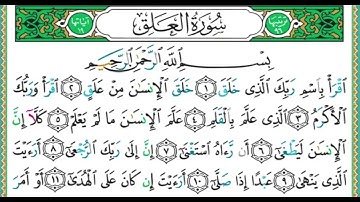 ترتيبها ٩٦ سُورَةُ العَلَقِ آياتها ١٩
بِسْمِ اللَّهِ الرَّحْمَٰنِ الرَّحِيمِ
ٱقْرَأْ بِٱسْمِ رَبِّكَ ٱلَّذِى خَلَقَ ۝١ خَلَقَ ٱلْإِنسَٰنَ مِنْ عَلَقٍ ۝٢ ٱقْرَأْ وَرَبُّكَ
ٱلْأَكْرَمُ ۝٣ ٱلَّذِى عَلَّمَ بِٱلْقَلَمِ ۝٤ عَلَّمَ ٱلْإِنسَٰنَ مَا لَمْ يَعْلَمْ ۝٥ كَلَّآ إِنَّ
ٱلْإِنسَٰنَ لَيَطْغَىٰٓ ۝٦ أَن رَّءَاهُ ٱسْتَغْنَىٰٓ ۝٧ إِنَّ إِلَىٰ رَبِّكَ ٱلرُّجْعَىٰٓ ۝٨ أَرَءَيْتَ
ٱلَّذِى يَنْهَىٰ ۝٩ عَبْدًا إِذَا صَلَّىٰٓ ۝١٠ أَرَءَيْتَ إِن كَانَ عَلَى ٱلْهُدَىٰٓ ۝١١ أَوْ أَمَرَ